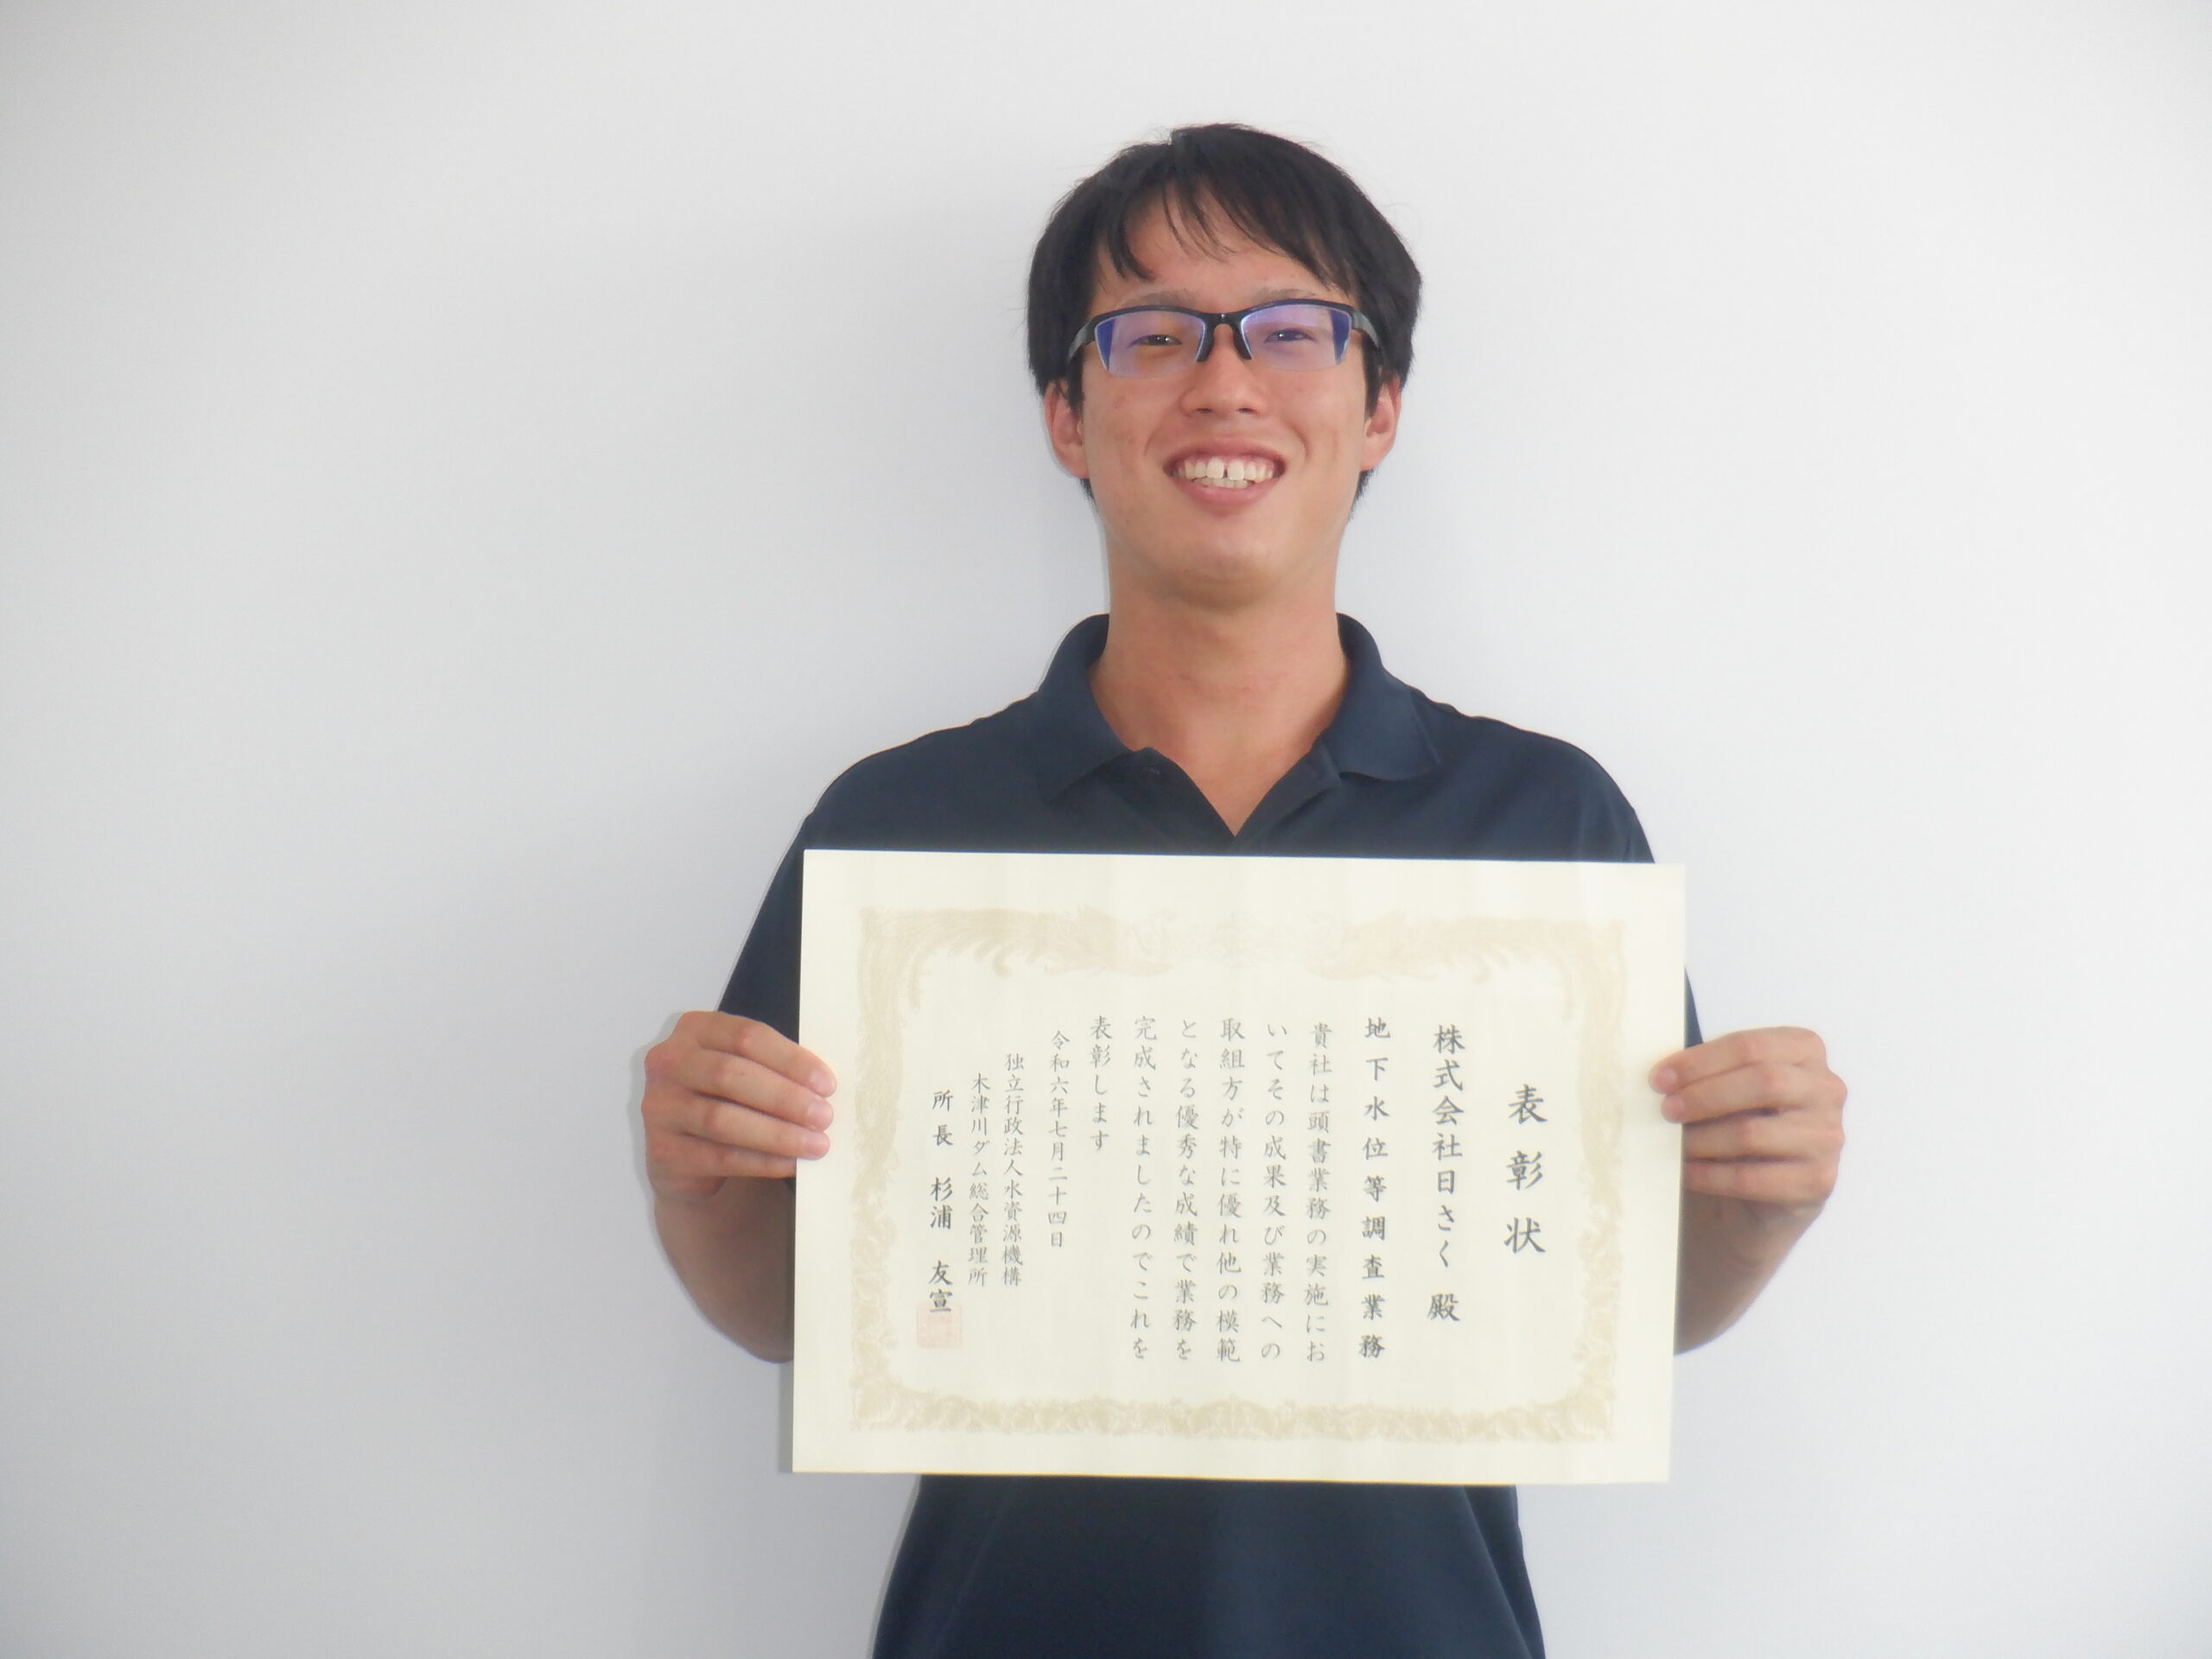 表彰状
株式会社日さく 殿
地下水位等調査業務
貴社は頭書業務の実施にお
いてその成果及び業務への
取組方が特に優れ他の模範
となる優秀な成績で業務を
完成されましたのでこれを
表彰します
令和六年七月二十四日
独立行政法人水資源機構
木津川ダム総合管理所
所長 杉浦 友宣